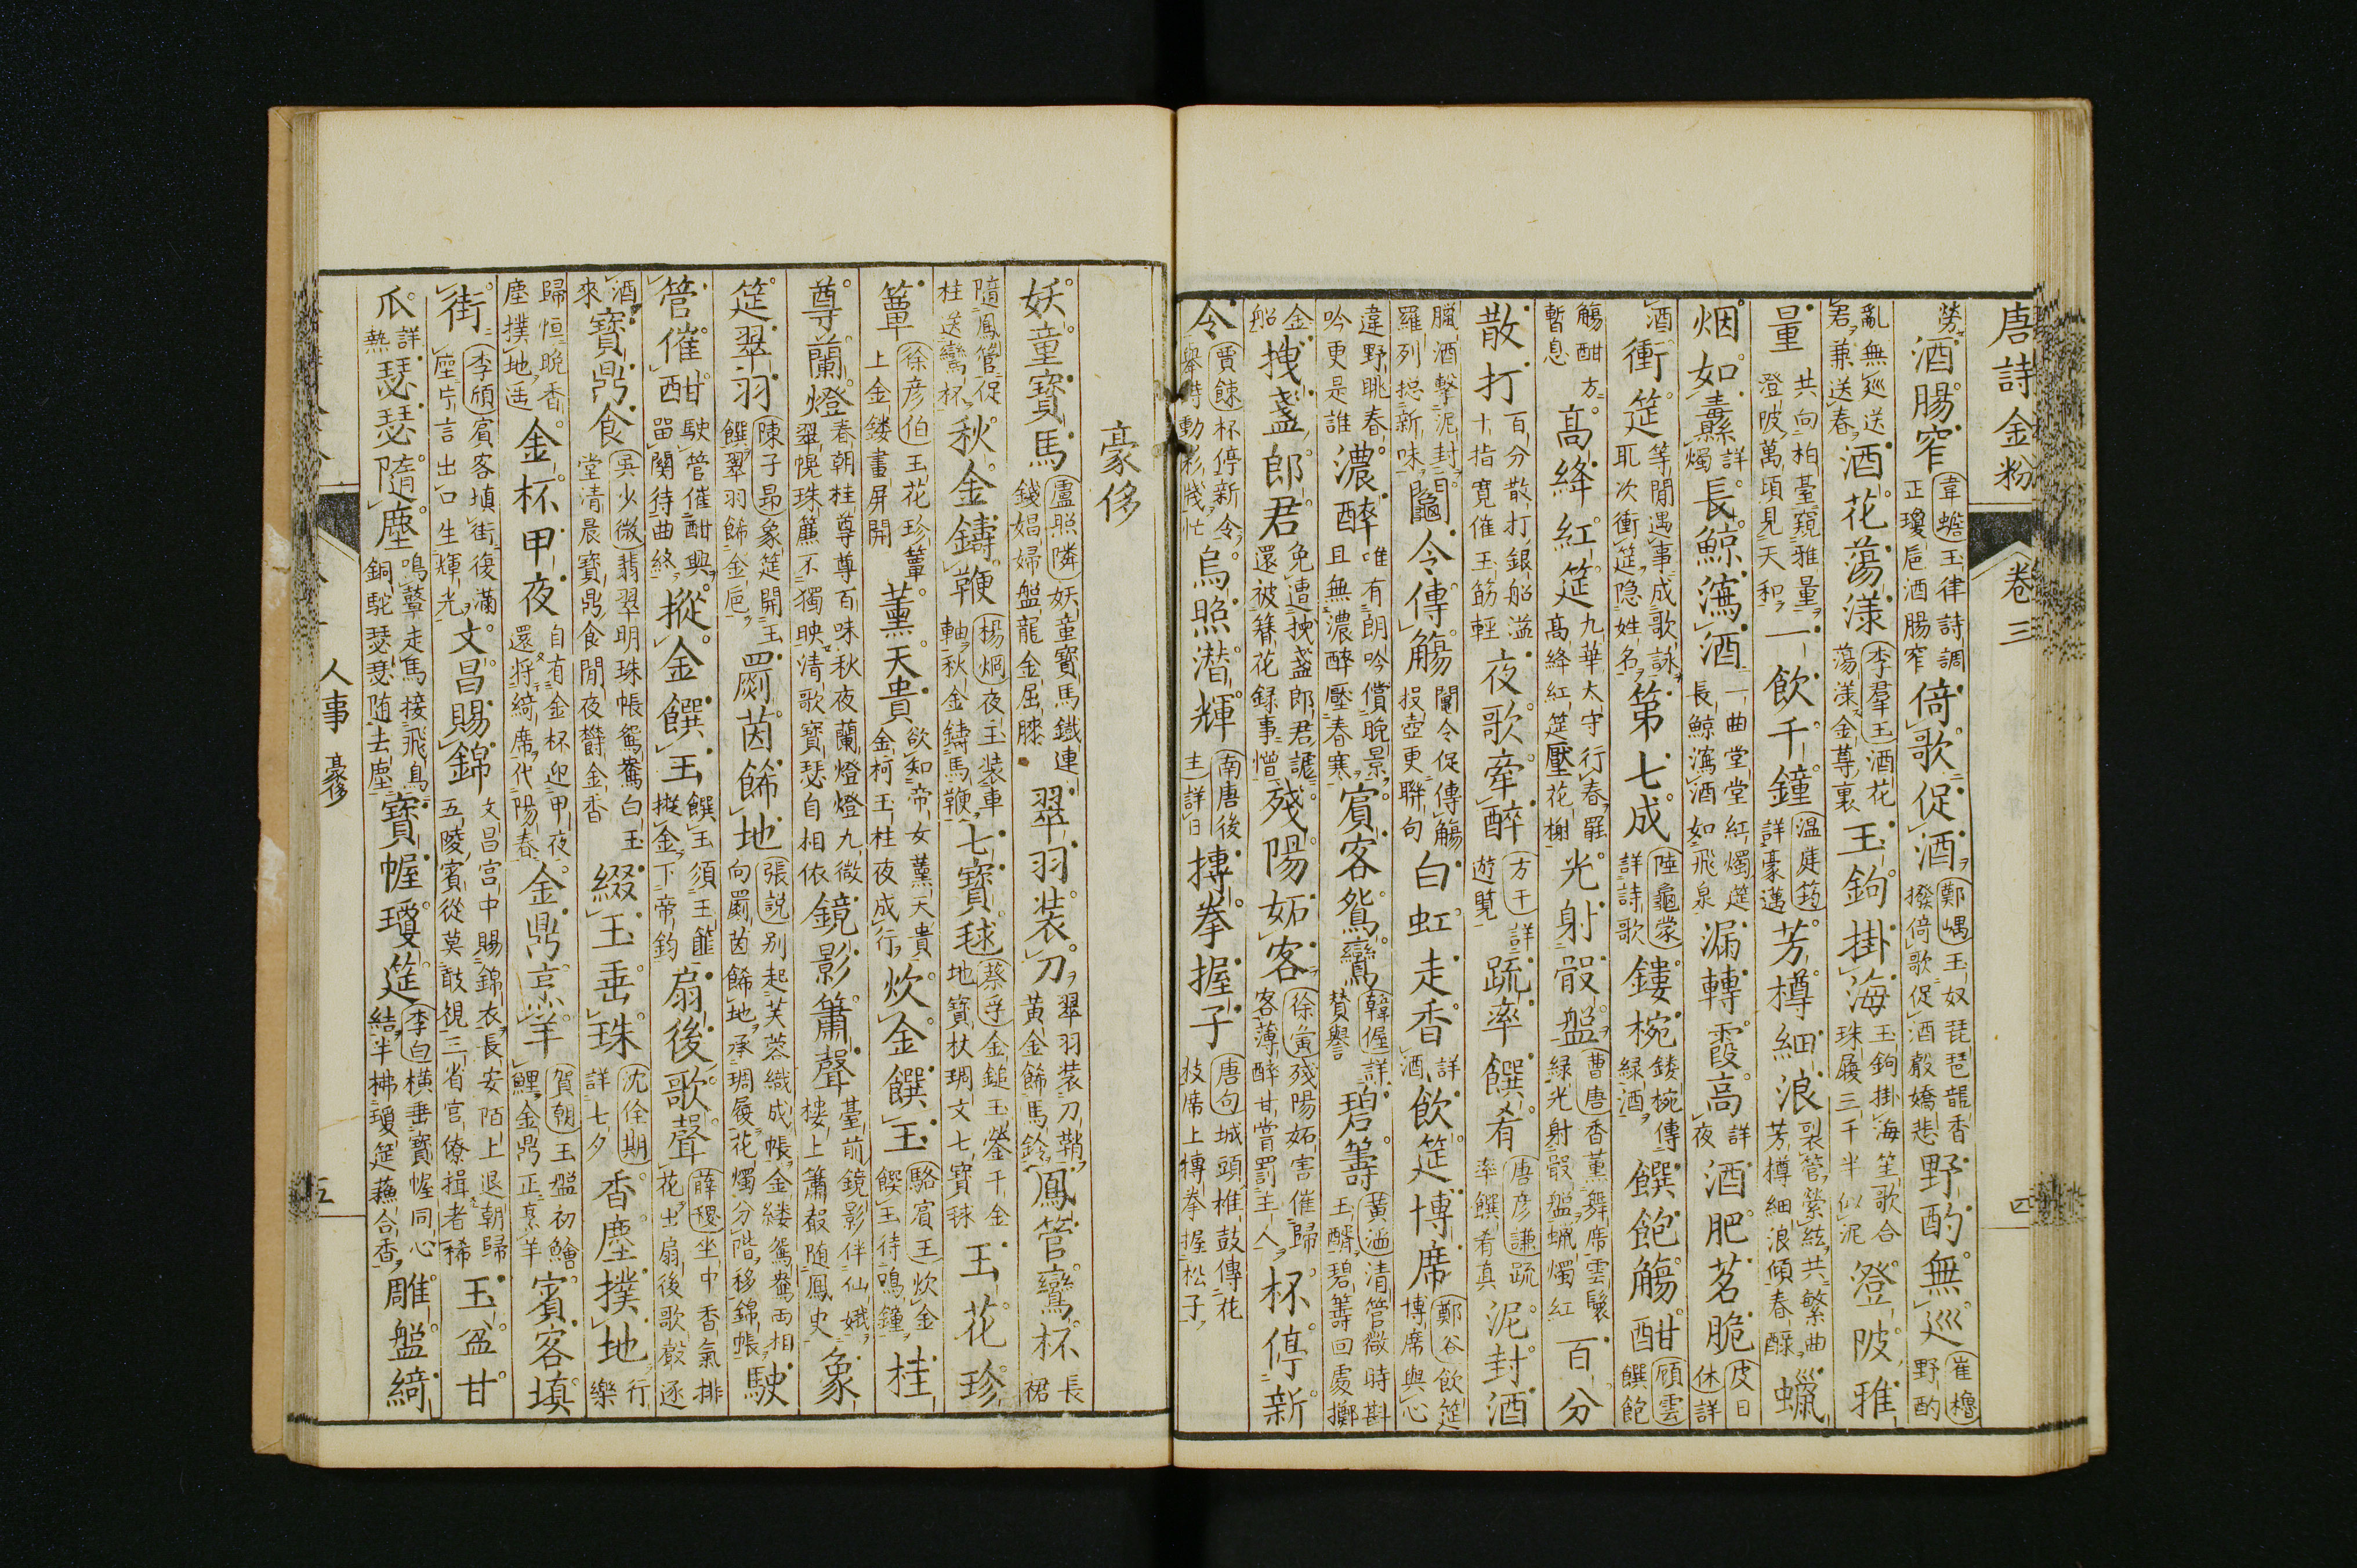 唐詩金粉 卷三 四
勞 酒腸窄 韋蟾 玉律詩調正瓊巵酒腸窄 倚歌促酒 鄭嵎 玉奴琵琶龍香撥倚歌促酒聲嬌悲 野酌無巡 崔櫓 野酌
亂無巡送君兼送春 酒花蕩漾 李羣玉 酒花蕩漾金尊裏 玉鉤掛海 玉鉤掛海笙歌合珠履三千半似泥 澄陂雅
量 共向柏臺窺雅量澄陂萬頃見天和 一飲千鐘 溫庭筠 詳豪邁 芳樽細浪 裂管縈絃共繁曲芳樽細浪傾春醁 蠟
烟如纛 詳燭 長鯨瀉酒 一曲堂堂紅燭筵長鯨瀉酒如飛泉 漏轉霞高 詳夜 酒肥茗脆 皮日休 詳
酒 衝筵 等閒遇事成歌詠取次衝筵隐姓名 第七成 陸龜蒙 詳詩歌 鏤椀 鏤椀傳綠酒 饌飽觴酣 顧雲 饌飽
觴酣方暫息 高絳紅筵 九華太守行春罷高絳紅筵壓花榭 光射骰盤 曹唐 香薰舞席雲鬟綠光射骰盤蠟燭紅 百分
散打 百分散打銀船溢十指寬催玉筯輕 夜歌牽醉 方干 詳遊覽 疏率饌肴 唐彦謙 疏率饌肴真 泥封酒
臘酒擊泥封羅列揔新味 鬮令傳觴 鬮令促傳觴投壺更聯句 白虹走香 詳酒 飲筵博席 鄭谷 飲筵博席與心
違野眺春吟更是誰 濃醉 唯有朗吟償晚景且無濃醉壓春寒 賓客鴛鸞 韓偓 詳贊譽 碧籌 黃滔 清管微時斟玉醑碧籌回處擲
金船 拽盞郎君 免遭拽盞郎君謔還被簪花録事憎 殘陽妬客 徐夤 殘陽妬害催歸客薄醉甘嘗罰主人 杯停新
令 賈餗 杯停新令舉詩動彩牋忙 烏照潛輝 南唐後主 詳日 摶拳握子 唐句 城頭椎鼓傳花枝席上摶拳握松子
豪侈
妖童寶馬 盧照隣 妖童寶馬鐵連錢娼婦盤龍金屈膝 翠羽装刀 翠羽装刀鞘黃金飾馬鈴 鳳管鸞杯 長裙
隨鳳管促柱送鸞杯 秋金鑄鞭 楊烱 夜玉装車軸秋金鑄馬鞭 七寶毬 蔡孚 金鎚玉鎣千金地寶杖琱文七寶毬 玉花珍
簟 徐彦伯 玉花珍簟上金鏤畫屏開 薰天貴 欲知帝女薰天貴金柯玉柱夜成行 炊金饌玉 駱賓王 炊金饌玉待鳴鐘 桂
尊蘭燈 春朝桂尊尊百味秋夜蘭燈燈九微翠幌珠簾不獨映清歌寶瑟自相依 鏡影簫聲 臺前鏡影伴仙娥樓上簫聲随鳳史 象
筵翠羽 陳子昻 象筵開玉饌翠羽飾金巵 罽茵飾地 張說 别起芙蓉織成帳金縷鴛鴦兩相向罽茵飾地承琱履花燭分階移錦帳 駛
管催酣 駛管催酣興留關待曲終 摐金饌玉 饌玉須王䉛摐金下帝鈞 扇後歌聲 薛稷 坐中香氣排花出扇後歌聲逐
酒來 寶鼎食 吳少微 翡翠明珠帳鴛鴦白玉堂清晨寶鼎食閒夜欝金香 綴玉垂珠 沈佺期 詳七夕 香塵撲地 行樂
歸恒晚香塵撲地遥 金杯甲夜 自有金杯迎甲夜還將綺席代陽春 金鼎烹羊 賀朝 玉盤初鱠鯉金鼎正烹羊 賓客填
街 李頎 賓客填街復滿座片言出口生輝光 文昌賜錦 文昌宫中賜錦衣長安陌上退朝歸五陵賓從莫敢視三省宫僚揖者稀 玉盆甘
瓜 詳熱 瑟瑟隨塵 鳴鼙走馬接飛鳥銅駝瑟瑟随去塵 寶幄瓊筵 李白 横垂寶幄同心結半拂瓊筵蘓合香 雕盤綺
人事 豪侈 五